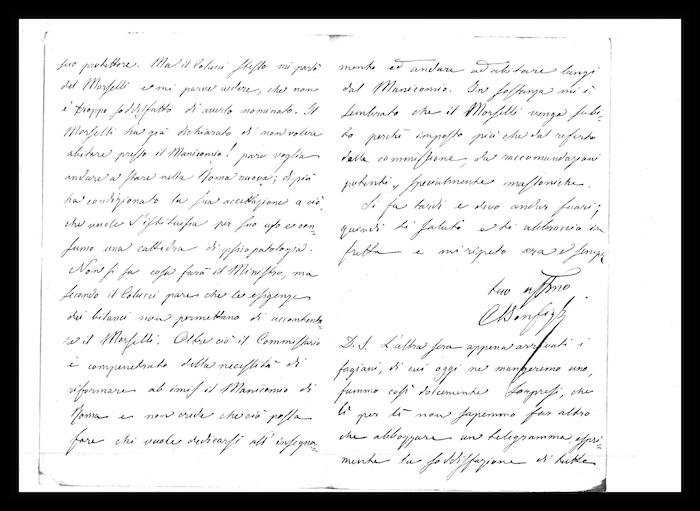 suo protettore. Ma il Colucci stesso mi parlò
del Morselli e mi parve vedere, che non
è troppo soddisfatto di averlo nominato. Il
Morselli ha già dichiarato di non volere
abitare presso il Manicomio! pare voglia
andare a stare nella Roma nuova; di più
ha condizionato la sua accettazione a ciò,
che vuole s'istituisca per suo uso e con=
sumo una cattedra di psicopatologia.
Non si sa cosa farà il Ministro, ma
secondo il Colucci pare che le esigenze
dei bilanci non permettano di accontenta=
re il Morselli. Oltre ciò il Commissario
è compenetrato della necessità di
riformare ab imis il Manicomio di
Roma e non crede che ciò possa
fare chi vuole dedicarsi all'insegna=
mento ed andare ad abitare lungi
dal Manicomio. In sostanza mi è
sembrato che il Morselli venga subi=
to perchè imposto più che dal referto
della commissione, da raccomandazioni
potenti, specialmente massoniche.
Si fa tardi e devo andar fuori;
quindi ti saluto e ti abbraccio in
fretta e mi ripeto ora e sempre
tuo affmo.
CBonfigli
P.S. L'altra sera appena arrivati i
fagiani, di cui oggi ne mangeremo uno,
fummo così dolcemente sorpresi, che
lì per lì non sapemmo far altro
che abbozzare un telegramma espri=
mente la soddisfazione di tutta